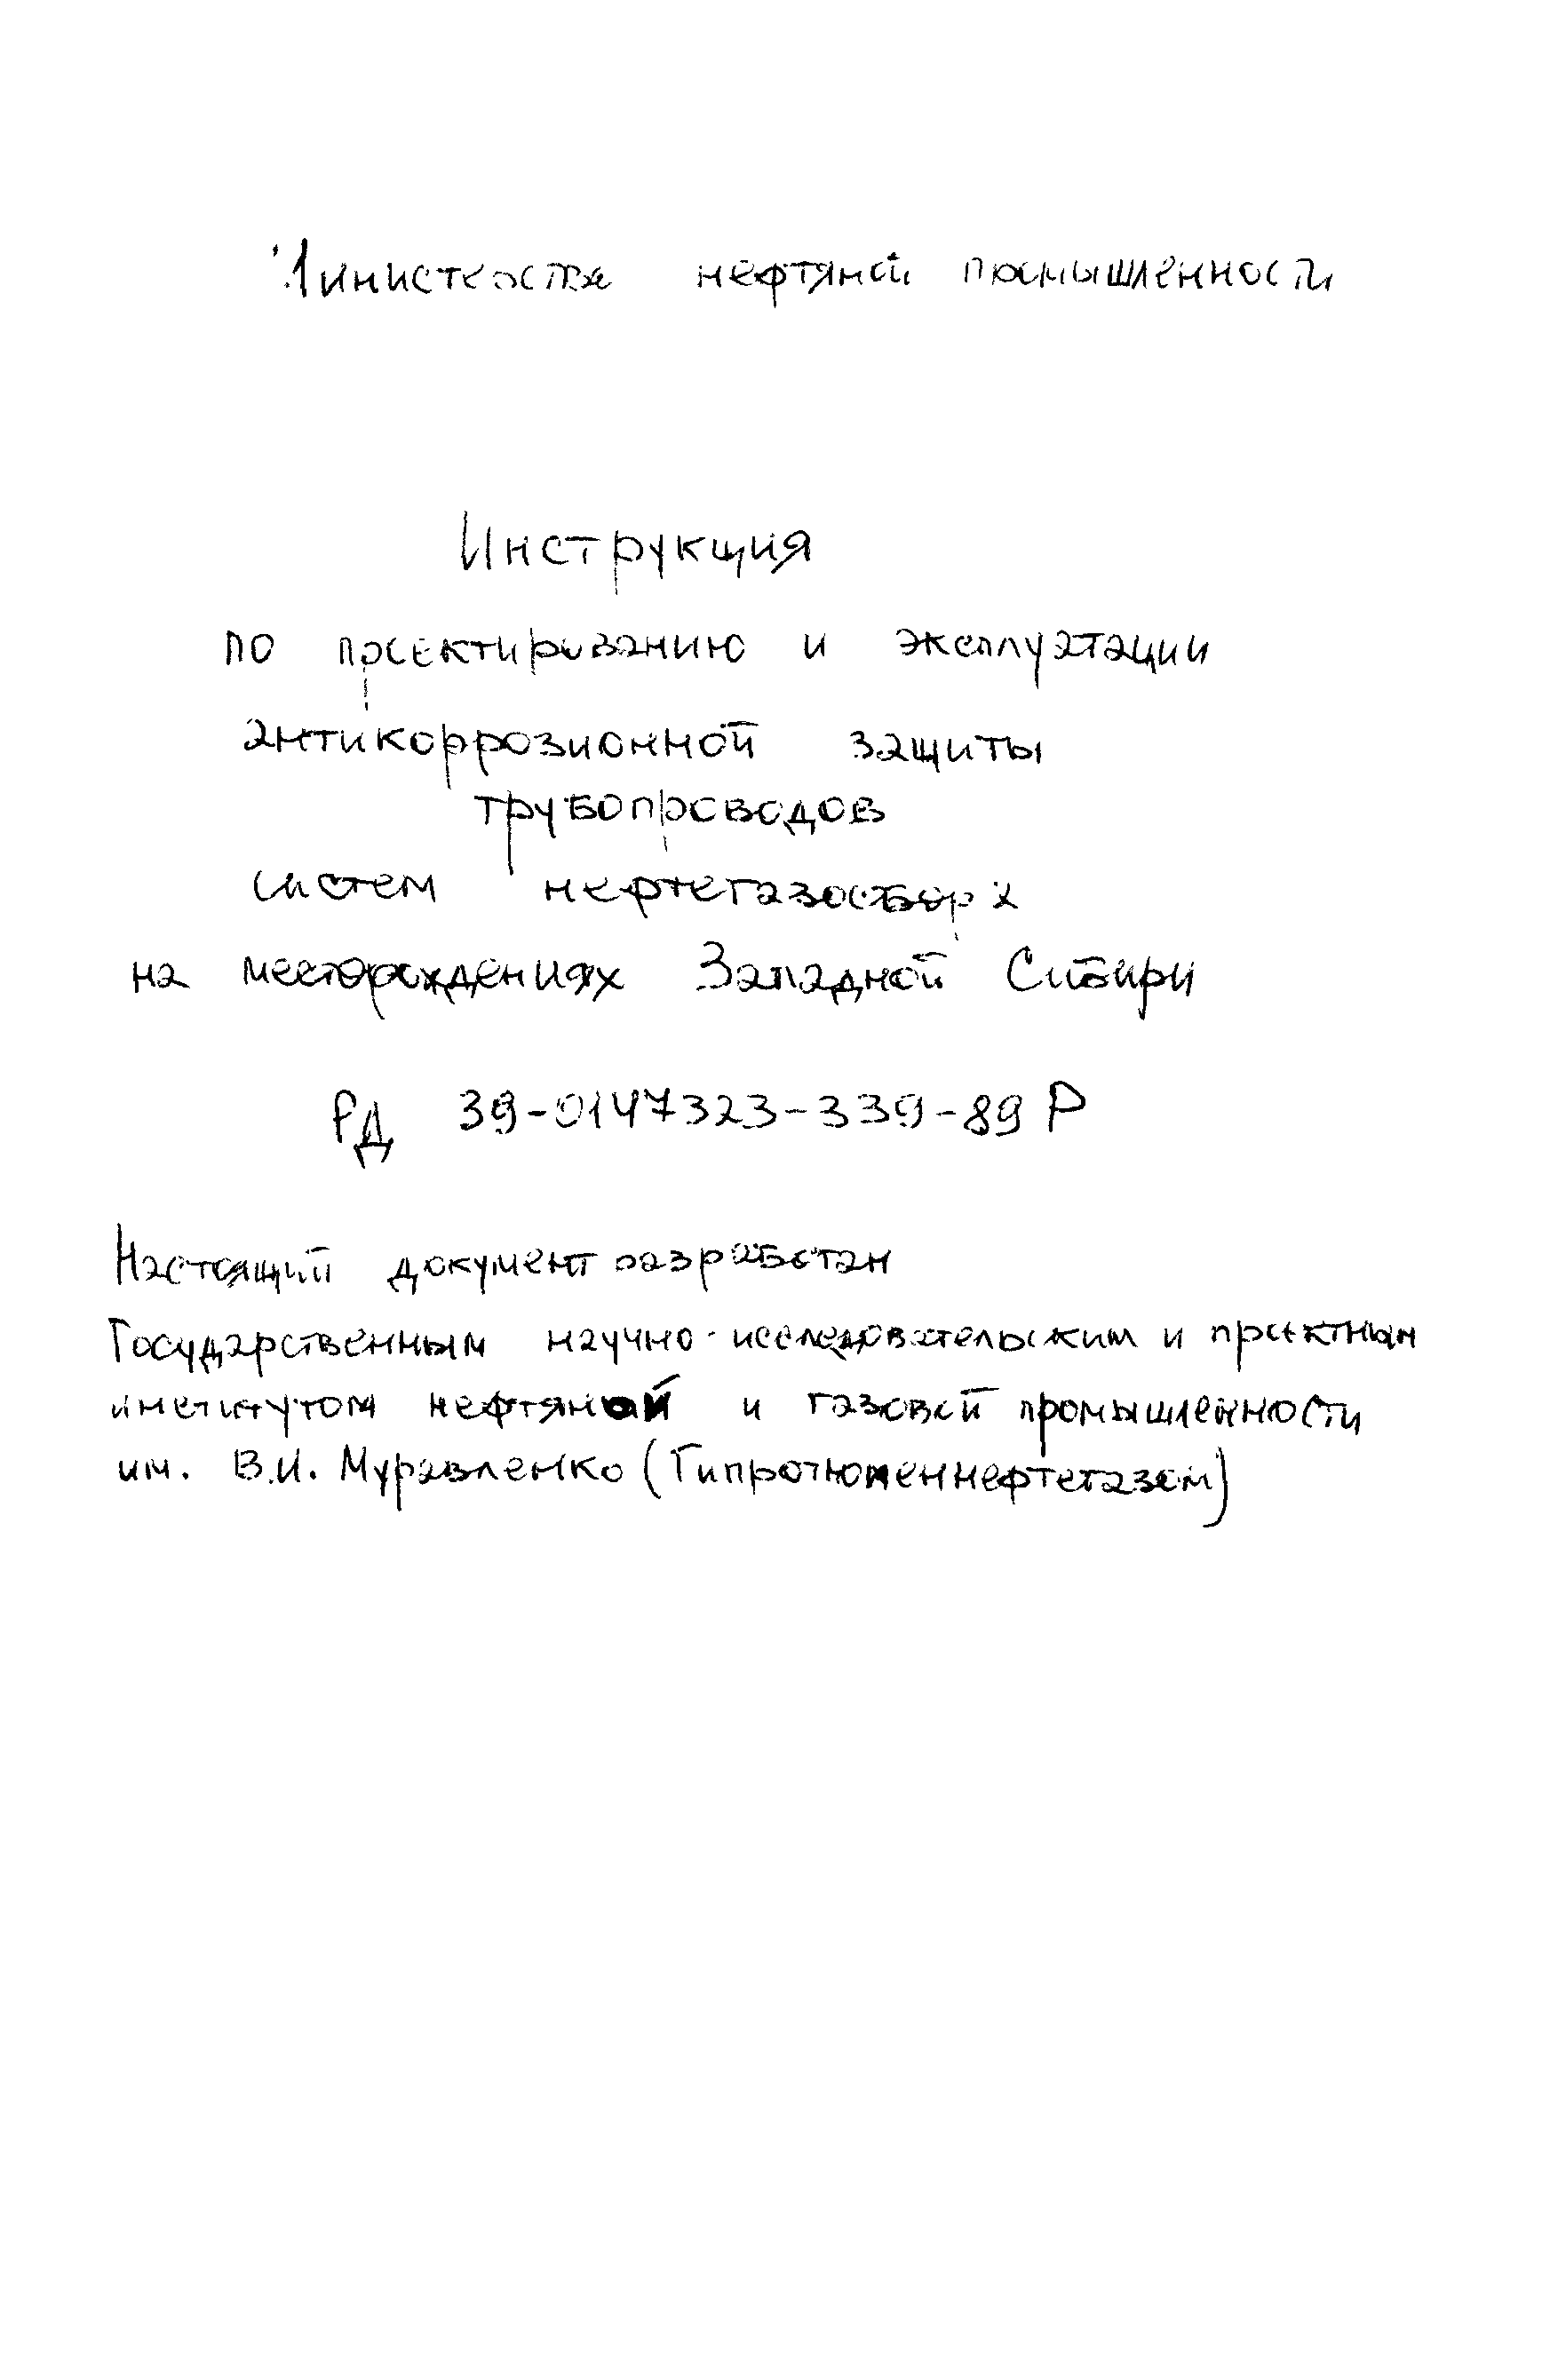 Министерства нефтяной промышленности
Инструкция
по проектированию и эксплуатации
антикоррозионной защиты
трубопроводов
систем нефтегазосбора
на месторождениях Западной Сибири
РД 39-0147323-339-89 Р
Настоящий документ разработан
Государственным научно-исследовательским и проектным
институтом нефтяной и газовой промышленности
им. В.И. Муравленко (Гипротюменнефтегазом)